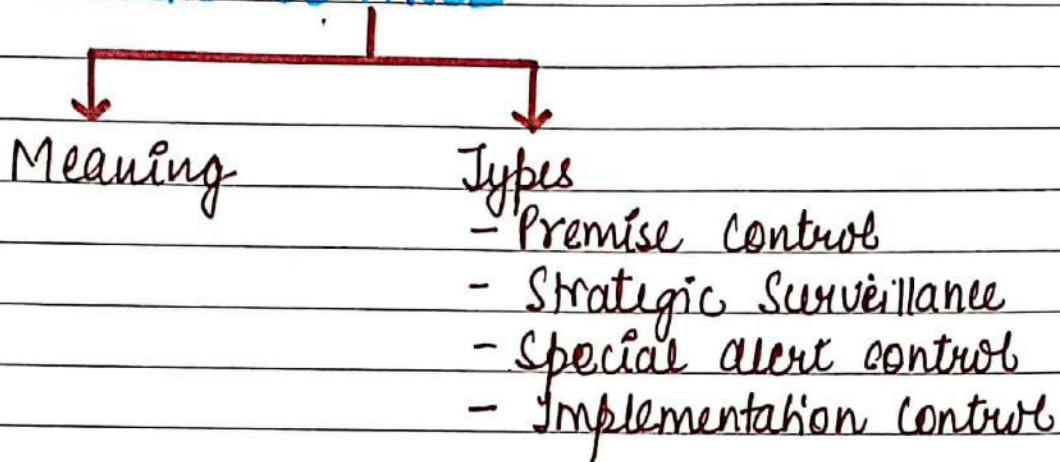 Meaning
Types
- Premise control
- Strategic Surveillance
- Special alert control
- Implementation control